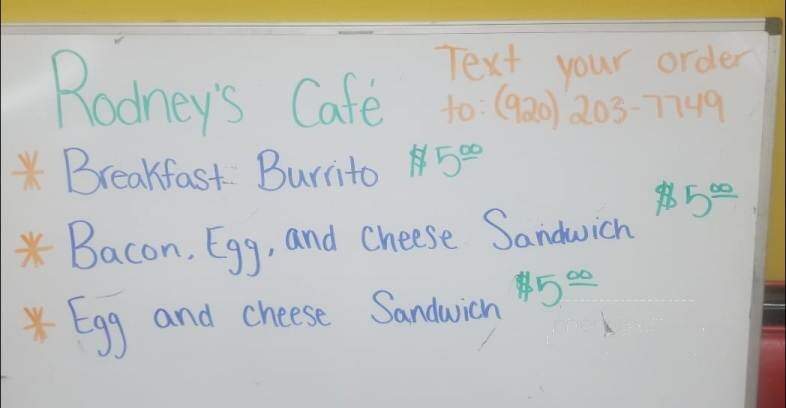 Rodney's Café
Text your order
to: (920) 203-7749
* Breakfast Burrito $5.00
* Bacon, Egg, and Cheese Sandwich $5.00
* Egg and cheese Sandwich $5.00